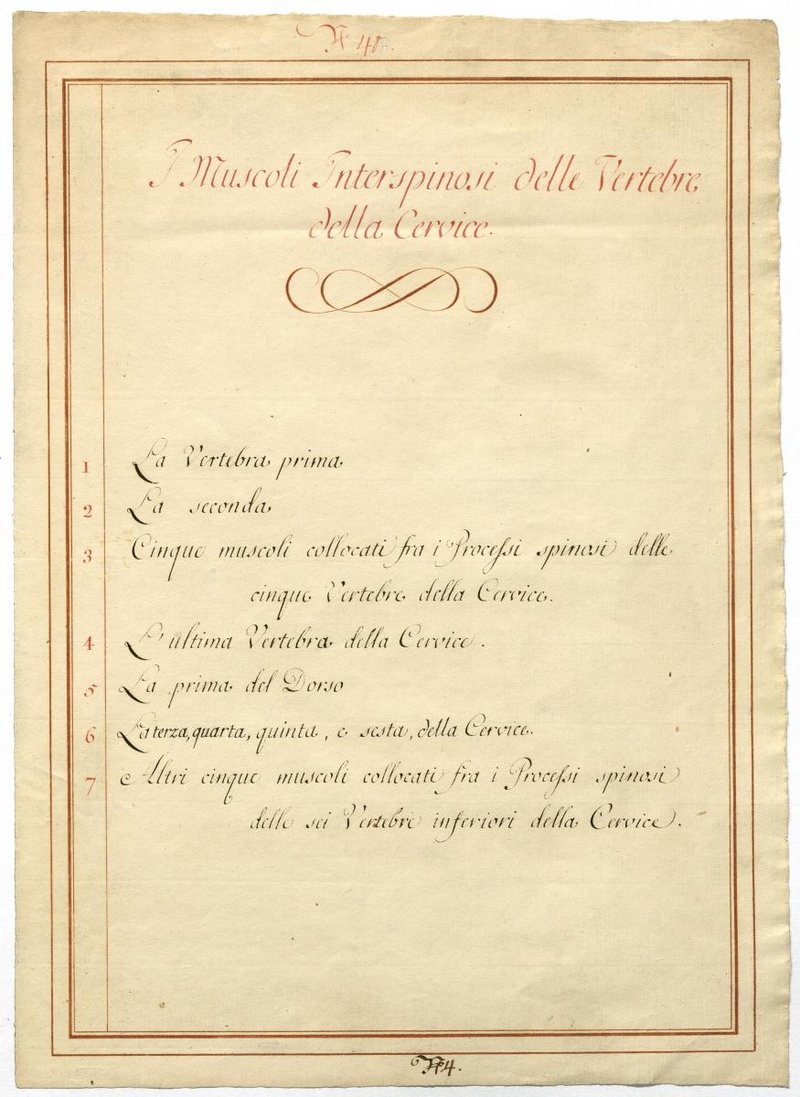 N 40.
I Muscoli Interspinosi delle Vertebre
della Cervice.
1 La Vertebra prima
2 La seconda
3 Cinque muscoli collocati fra i Processi spinosi delle
cinque Vertebre della Cervice.
4 L'ultima Vertebra della Cervice.
5 La prima del Dorso
6 La terza, quarta, quinta, e sesta, della Cervice.
7 Altri cinque muscoli collocati fra i Processi spinosi
delle sei Vertebre inferiori della Cervice.
N 4.